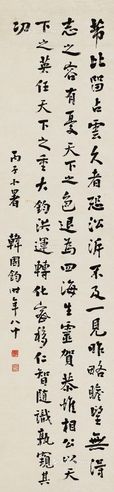 比留占雲久者沿泝不及一見昨略瞻望無得
志之容有憂天下之色退為四海生靈賀恭惟相公以天
下之英任天下之重大鈞洪運轉化密移仁智隨識孰窺其
功
丙子小暑
韓國鈞時年八十